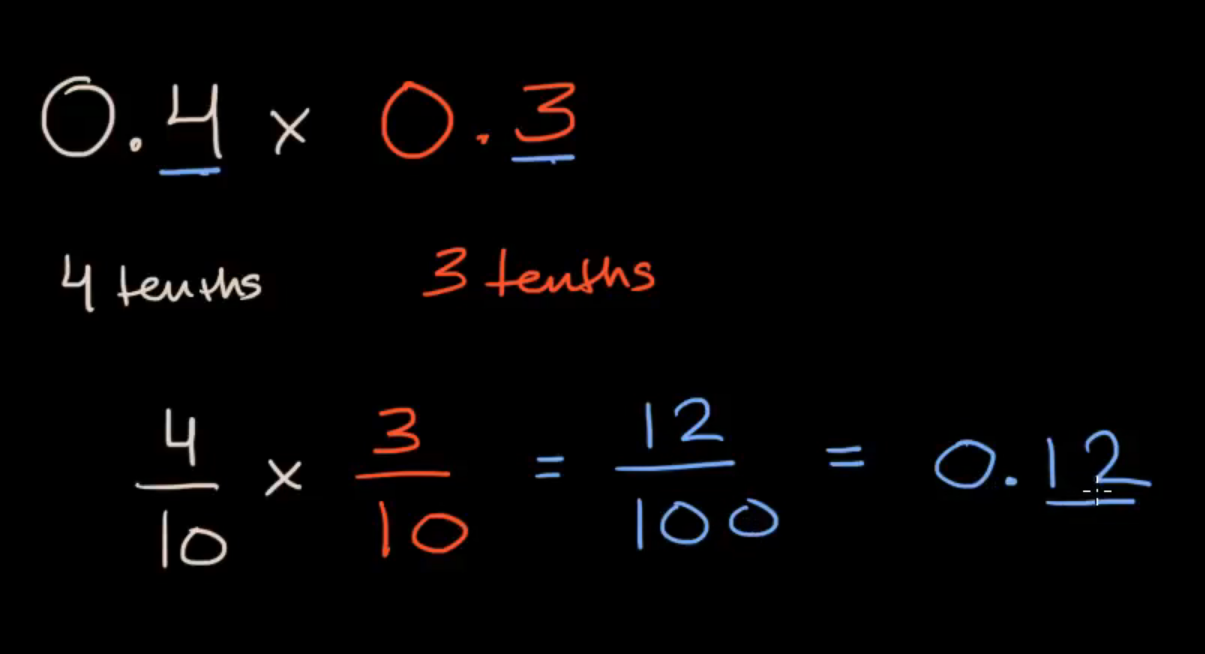 0.4 × 0.3
4 tenths 3 tenths
4/10 × 3/10 = 12/100 = 0.12